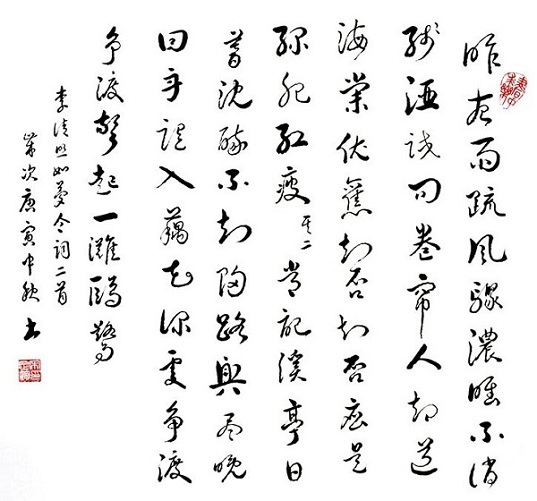 昨夜雨疏風驟濃睡不消
殘酒試問卷帘人却道
海棠依舊知否知否應是
綠肥紅瘦其二常記溪亭日
暮沈醉不知歸路興尽晚
回舟誤入藕花深處爭渡
爭渡驚起一灘鷗鷺
李清照如夢令詞二首
歲次庚寅中秋書